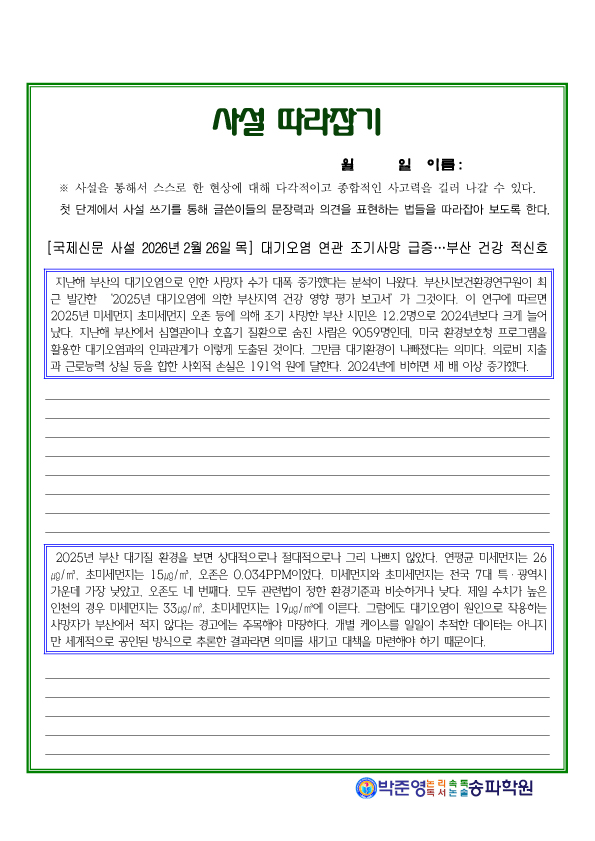 사설 따라잡기
월 일 이름:
※ 사설을 통해서 스스로 한 현상에 대해 다각적이고 종합적인 사고력을 길러 나갈 수 있다.
첫 단계에서 사설 쓰기를 통해 글쓴이들의 문장력과 의견을 표현하는 법들을 따라잡아 보도록 한다.
[국제신문 사설 2026년 2월 26일 목] 대기오염 연관 조기사망 급증…부산 건강 적신호
지난해 부산의 대기오염으로 인한 사망자 수가 대폭 증가했다는 분석이 나왔다. 부산시보건환경연구원이 최
근 발간한 ‘2025년 대기오염에 의한 부산지역 건강 영향 평가 보고서’가 그것이다. 이 연구에 따르면
2025년 미세먼지 초미세먼지 오존 등에 의해 조기 사망한 부산 시민은 12.2명으로 2024년보다 크게 늘어
났다. 지난해 부산에서 심혈관이나 호흡기 질환으로 숨진 사람은 9059명인데, 미국 환경보호청 프로그램을
활용한 대기오염과의 인과관계가 이렇게 도출된 것이다. 그만큼 대기환경이 나빠졌다는 의미다. 의료비 지출
과 근로능력 상실 등을 합한 사회적 손실은 191억 원에 달한다. 2024년에 비하면 세 배 이상 증가했다.
2025년 부산 대기질 환경을 보면 상대적으로나 절대적으로나 그리 나쁘지 않았다. 연평균 미세먼지는 26
㎍/㎥, 초미세먼지는 15㎍/㎥, 오존은 0.034PPM이었다. 미세먼지와 초미세먼지는 전국 7대 특·광역시
가운데 가장 낮았고, 오존도 네 번째다. 모두 관련법이 정한 환경기준과 비슷하거나 낮다. 제일 수치가 높은
인천의 경우 미세먼지는 33㎍/㎥, 초미세먼지는 19㎍/㎥에 이른다. 그럼에도 대기오염이 원인으로 작용하는
사망자가 부산에서 적지 않다는 경고에는 주목해야 마땅하다. 개별 케이스를 일일이 추적한 데이터는 아니지
만 세계적으로 공인된 방식으로 추론한 결과라면 의미를 새기고 대책을 마련해야 하기 때문이다.
박준영 논리속독 독서논술 송파학원